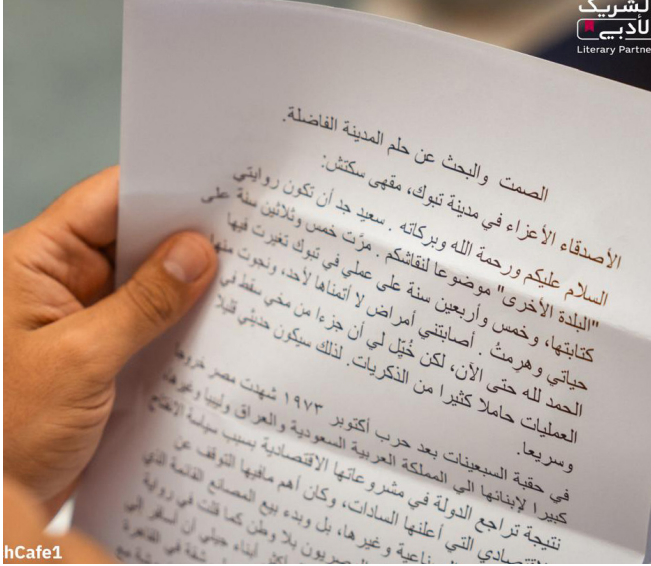 الشريك
الأدبي
Literary Partne
الصمت والبحث عن حلم المدينة الفاضلة.
الأصدقاء الأعزاء في مدينة تبوك، مقهى سكتش:
السلام عليكم ورحمة الله وبركاته . سعيد جد أن تكون روايتي
"البلدة الأخرى" موضوعا لنقاشكم . مرّت خمس وثلاثين سنة على
كتابتها، وخمس وأربعين سنة على عملي في تبوك تغيرت فيها
حياتي وهرمتُ . أصابتني أمراض لا أتمناها لأحد، ونجوت منها
الحمد لله حتى الآن، لكن خُيّل لي أن جزءا من مخي سقط في
العمليات حاملا كثيرا من الذكريات. لذلك سيكون حديثي قليلا
وسريعا.
في حقبة السبعينات بعد حرب أكتوبر ١٩٧٣ شهدت مصر خروجا
كبيرا لإبنائها الى المملكة العربية السعودية والعراق وليبيا وغيرها،
نتيجة تراجع الدولة في مشروعاتها الاقتصادية بسبب سياسة الانفتاح
الاقتصادي التي أعلنها السادات، وكان أهم مافيها التوقف عن
وغيرها، بل وبدء بيع المصانع القائمة الذي
بلا وطن كما قلت في رواية
أبناء جيلي أن أسافر إلى
شقة في القاهرة
hCafe1